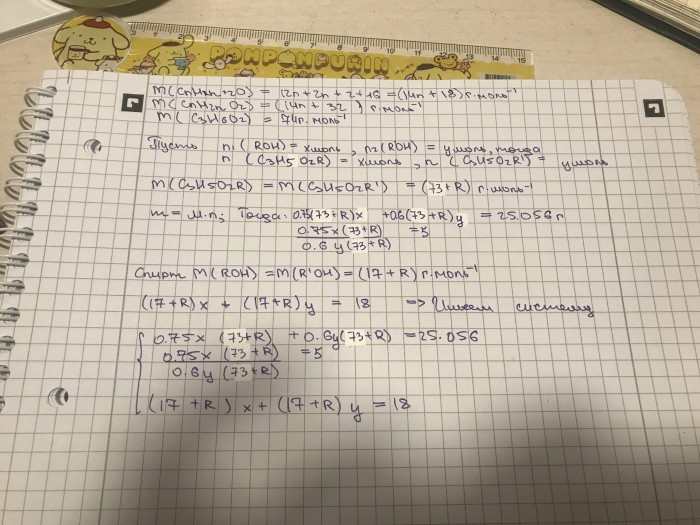 POMPOMPURIN
M(CnH2n+2O) = 12n+2n+2+16 = (14n+18) г.моль⁻¹
M(CnH2nO2) = (14n+32) г.моль⁻¹
M(C3H6O2) = 74г.моль⁻¹
Пусть n1(ROH) = xмоль, n2(ROH) = yмоль, тогда
n(C3H5O2R) = xмоль, n(C3H5O2R') = yмоль
M(C3H5O2R) = M(C3H5O2R') = (73+R) г.моль⁻¹
m = M.n; Тогда: 0.75(73+R)x + 0.6(73+R)y = 25.056 г
0.75x(73+R) = 5
0.6y(73+R)
Спирт M(ROH) = M(R'OH) = (17+R) г.моль⁻¹
(17+R)x + (17+R)y = 18 => Имеем систему
0.75x (73+R) + 0.6y(73+R) = 25.056
0.75x (73+R) = 5
0.6y (73+R)
(17+R)x + (17+R)y = 18